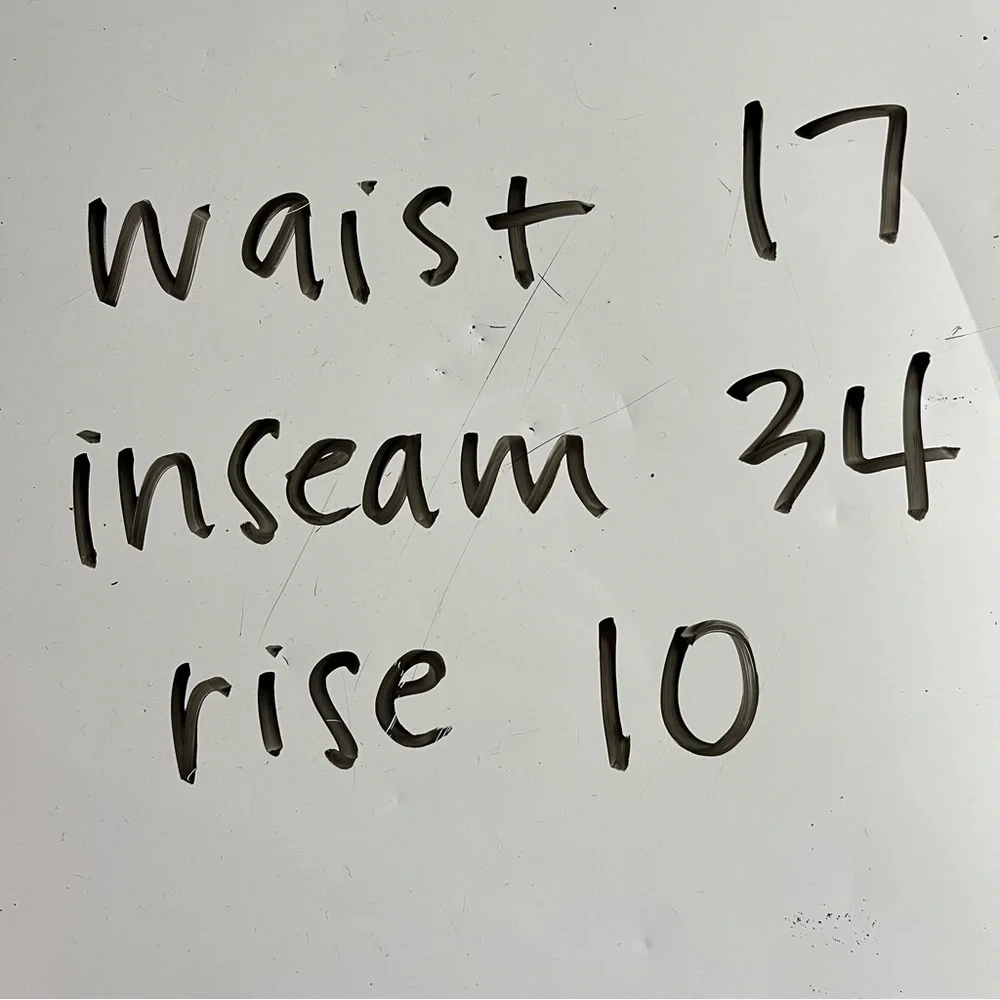 waist 17
inseam 34
rise 10